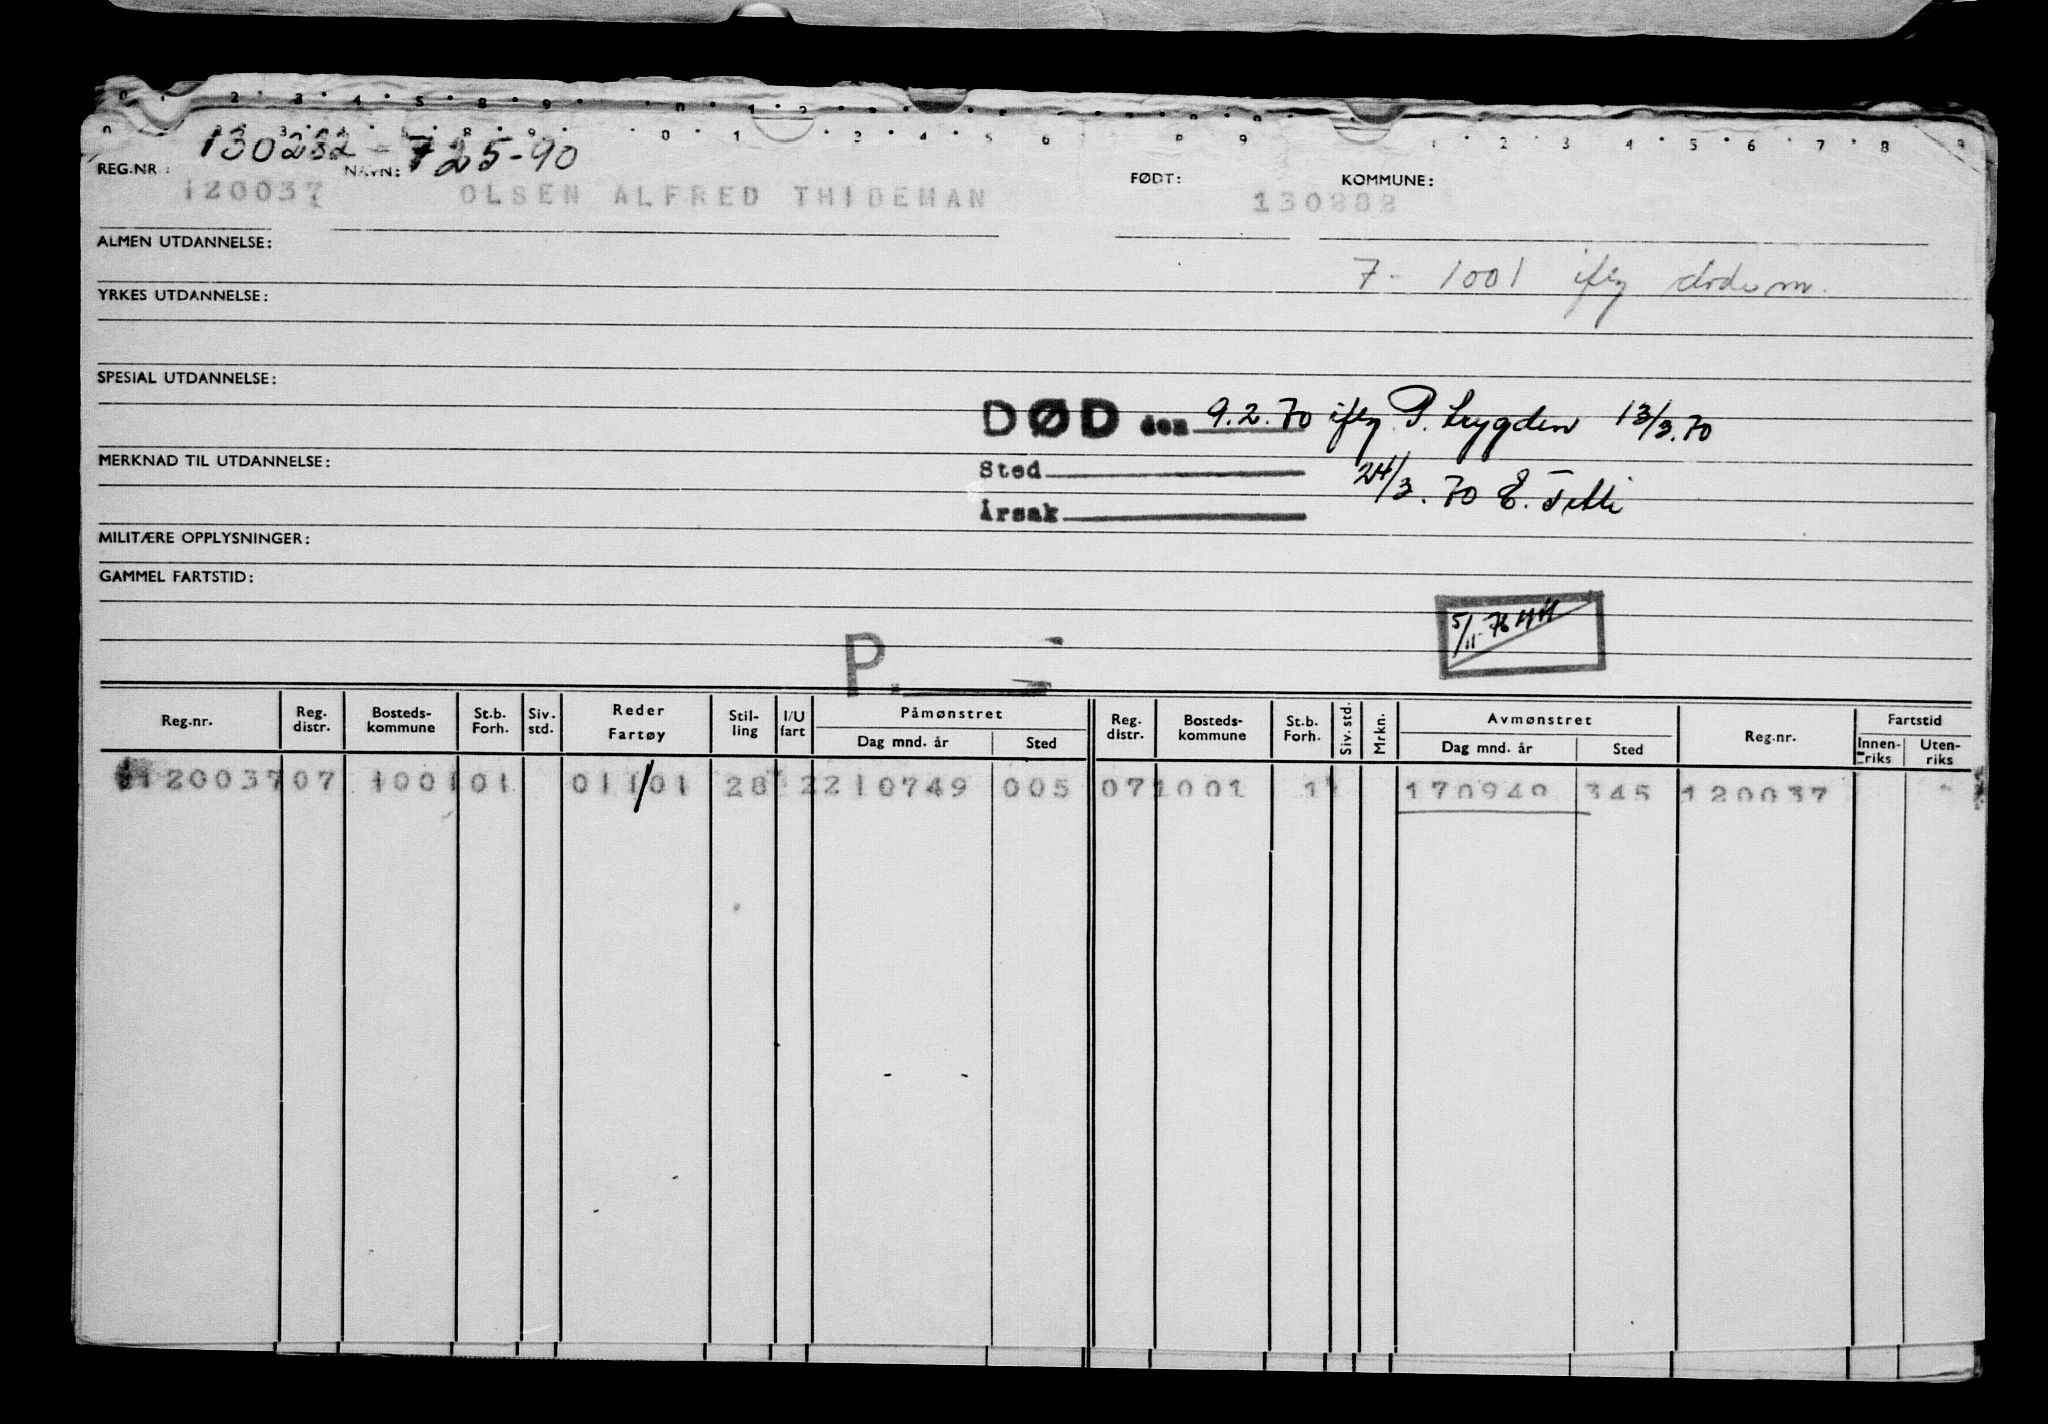 0 2 3 4 5 8 9 0 1 2
130232 - 725-90
0 1 3 4 5 6 8 9 1 2 3 4 5 6 7 8 9
REG.NR.: 120037 NAVN: OLSEN ALFRED THIDEMAN FØDT: 130288 KOMMUNE:
ALMEN UTDANNELSE:
7- 1001 iflg dødsm.
YRKES UTDANNELSE:
SPESIAL UTDANNELSE:
DØD den 9.2.70 iflg P. trygden 13/3.70
MERKNAD TIL UTDANNELSE:
Sted
24/3.70 E.
Årsak
MILITÆRE OPPLYSNINGER:
GAMMEL FARTSTID:
5/11-76
P.
Reg.nr. Reg. distr. Bosteds-kommune St.b. Forh. Siv. std. Reder Fartøy Stil-ling I/U fart Påmønstret Dag mnd. år Sted Reg. distr. Bosteds-kommune St.b. Forh. Siv. std. Mrkn. Avmønstret Dag mnd. år Sted Reg.nr. Fartstid Innen-riks Uten-riks
120037 07 1001 01 011/01 28 2 210749 005 07 1001 1 170949 345 120037